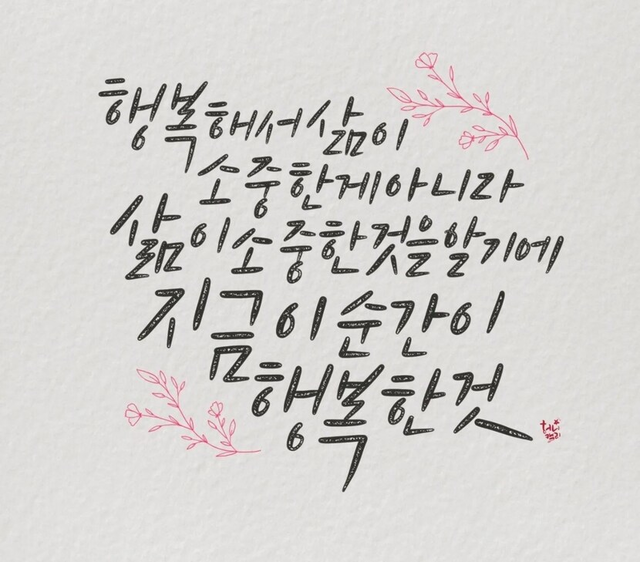 행복해서 삶이
소중한게 아니라
삶이 소중한 것을 알기에
지금 이 순간이
행복한 것